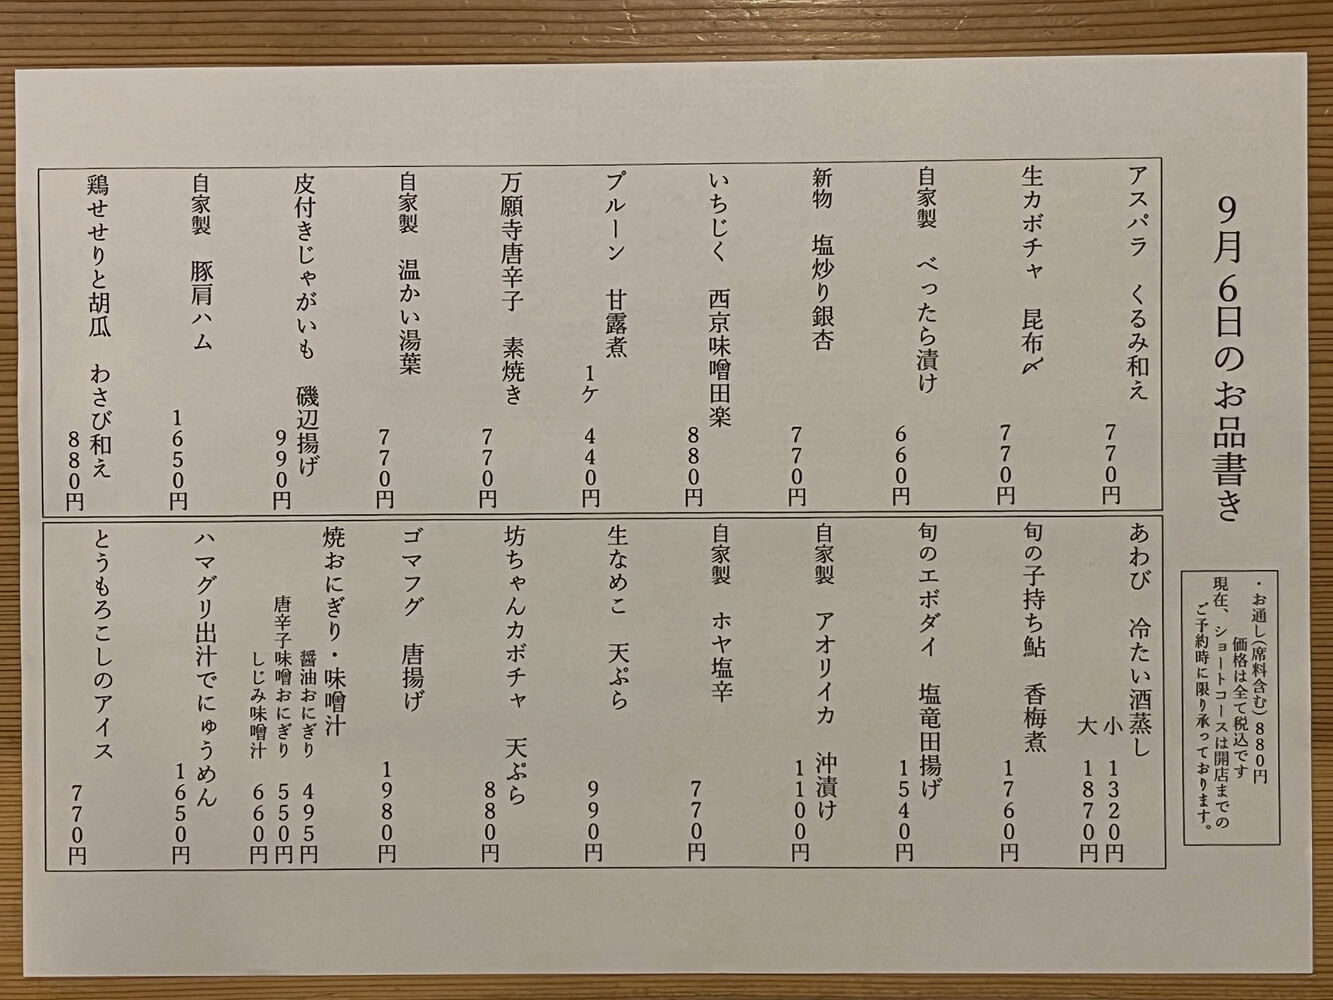 9月6日のお品書き
・お通し(席料含む)880円
価格は全て税込です
現在、ショートコースは開店までの
ご予約時に限り承っております。
アスパラ くるみ和え
770円
生カボチャ 昆布〆
770円
自家製 べったら漬け
660円
新物 塩炒り銀杏
770円
いちじく 西京味噌田楽
880円
プルーン 甘露煮
1ケ 440円
万願寺唐辛子 素焼き
770円
自家製 温かい湯葉
770円
皮付きじゃがいも 磯辺揚げ
990円
自家製 豚肩ハム
1650円
鶏せせりと胡瓜 わさび和え
880円
あわび 冷たい酒蒸し
小 1320円
大 1870円
旬の子持ち鮎 香梅煮
1760円
旬のエボダイ 塩竜田揚げ
1540円
自家製 アオリイカ 沖漬け
1100円
自家製 ホヤ塩辛
770円
生なめこ 天ぷら
990円
坊ちゃんカボチャ 天ぷら
880円
ゴマフグ 唐揚げ
1980円
焼おにぎり・味噌汁
醤油おにぎり 495円
唐辛子味噌おにぎり 550円
しじみ味噌汁 660円
ハマグリ出汁でにゅうめん
1650円
とうもろこしのアイス
770円